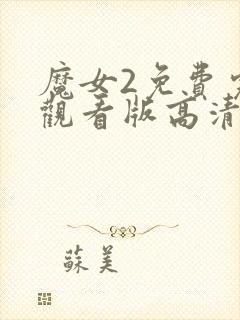 魔女2免費
觀看版高清
蘇美